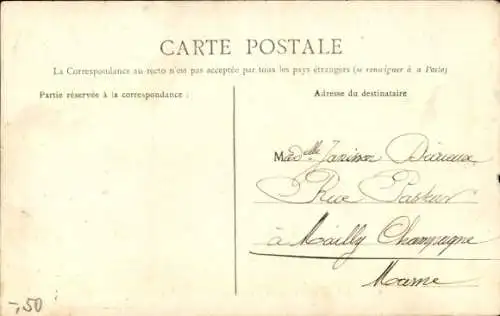 CARTE POSTALE
La Correspondance au recto n'est pas acceptée par tous les pays étrangers (se renseigner à a Poste)
Partie réservée à la correspondance :
Adresse du destinataire
Madelle
Rue Pasteur
à Mailly Champagne
Marne
-,50